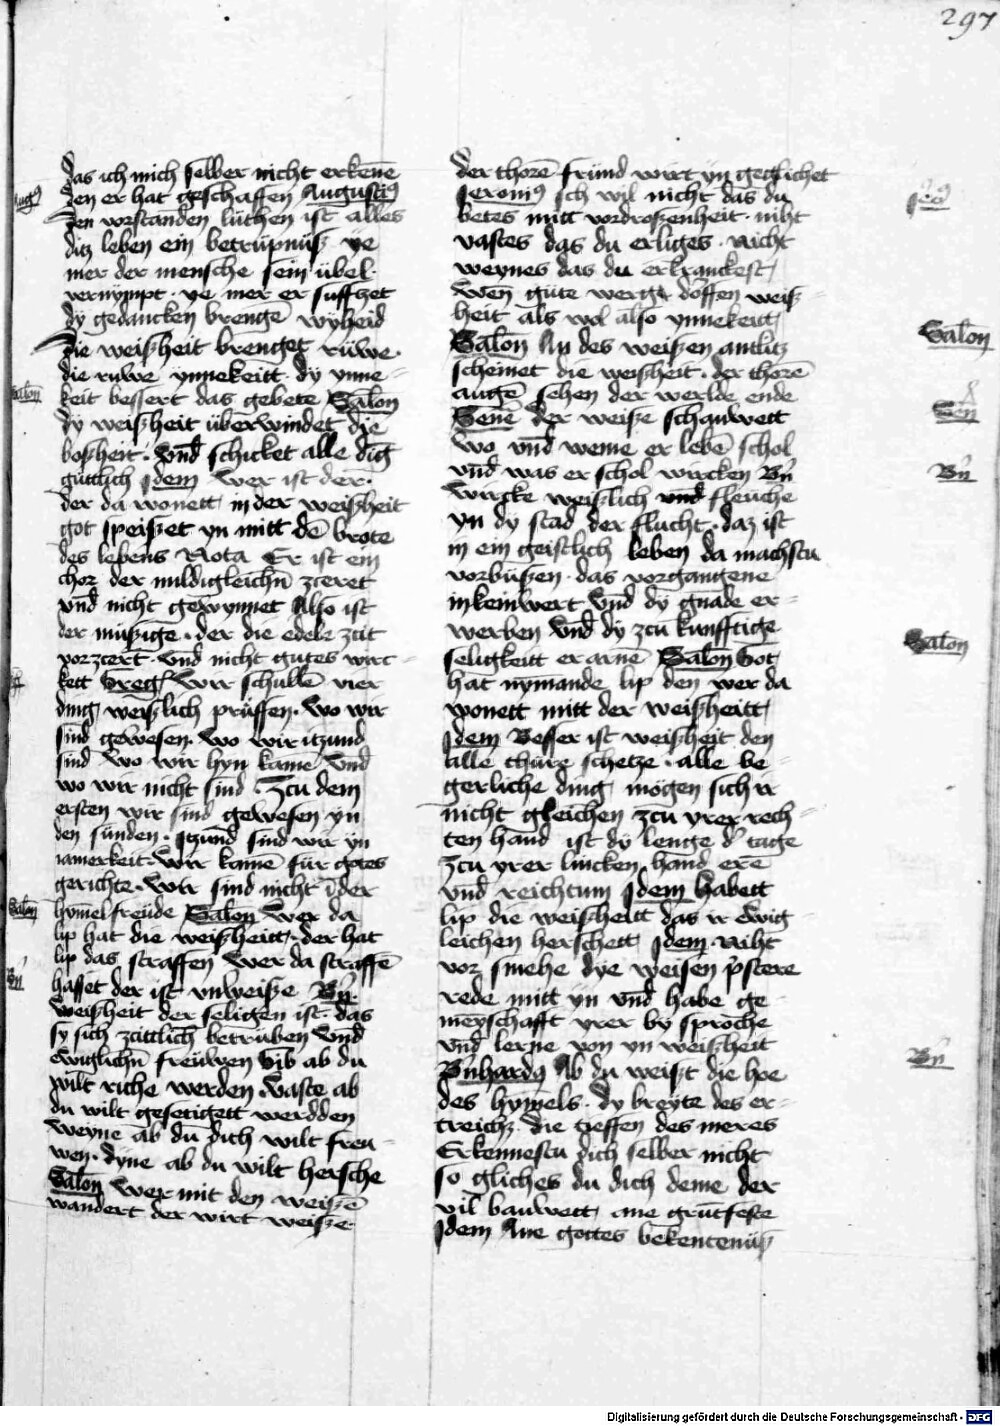 297
das ich mich selber nicht erkeñe
den er hat geschaffen Augustiꝰ
Augꝰ
Den vorstanden lüthen ist alles
ditz leben ein betrüpnüß ye
mer der mensche sein übel·
vernympt · ye mer er sufftzet
dy gedancken brengē wyßheid
Die weißheit brenget rüwe·
die ruwe ynnekeitt · dy ynne-
keit bessert das gebete Salon̄
Salon̄
dy weißheit überwindet die
boßheit · vnd̄ schicket alle ding
gütlich Idem Wer ist der·
der da wonett in der weißheit
got speißet yn mitt dē brote
des lebens Nota Er ist ein
chor der mildigleichn̄ zceret
vnd̄ nicht gewynnet Also ist
der müßige · der die edele zcit
vorzcert · vnd nicht gutes wirc-
kett Greḡ Wir schullē vier
ding weißlich prüffen· wo wir
sind gewesen· wo wir itzund
sind wo wir hyn kamē vnd̄
wo wir nicht sind · Zcu dem
ersten wir sind gewesen yn
den sünden · Itzund sind wir yn
iamerkeit · wir kamē für gotes
gerichte · wir sind nicht ī der
hymel freüde Salon̄ Wer da
Salon̄
lip hat die weißheitt · der hat
lip das straffen Wer da straffē
hasset der ist vnweiße Bn̄
Bn̄
Weißheit der seligen ist · das
sy sich zcittlich betrüben vnd̄
ewiglichn̄ freüwen Gib ab du
wilt riche werden · vaste ab
du wilt gesetigett werdden
weyne ab du dich wilt freu-
wen · dyne ab du wilt hersche
Salon̄ Wer mit den weißē
wandert der wirt weiße
der thorē fründ wirt yn geglichet
Ieronīꝰ Ich wil nicht das du
Ieoꝰ
betes mitt vordroßenheit · niht
vastes das du erliges · nicht
weynes das du erkranckest
wen̄ güte werge döffen weiß-
heit als wol also ynnekeitt
Salon̄ An des weißen antlitz
Salon̄
scheinet die weißheit · der thorē
augē sehen der werlde ende
Senē Der weiße schauwett
Sen̄
wo vnd̄ weme er lebē schol
vnd̄ was er schol wircken Bn̄
Bn̄
Wircke weißlich vnd̄ fleuche
yn dy stad der flucht · daz ist
in ein geistlich leben da machstu
vorbüßen · das vorgangene
inkeinwert vnd̄ dy gnade er-
werben vnd̄ dy zcu kunfftige
seligkeitt er arnē Salon̄ Got
Salon̄
hat nymande lip den wer da
wonett mitt der weißheitt
Idem Besser ist weißheit den
alle thüre schetze · alle be-
gerliche ding mögen sich ir
nicht gleichen zcu yrer rech-
ten hand ist dy lenge d' tage
Zcu yrer lincken hand erē
vnd̄ reichtum Idem Habett
lip die weißheitt das ir ewig-
leichen herschett Idem · Niht
vor smehe dye weisen pstere
rede mitt yn vnd̄ habe ge-
meyschafft yrer by sproche
vnd̄ lerne von yn weißheit
Bn̄hardꝰ Ab du weißt die hoe
Bn̄
des hymels · dy breyte des er-
treichz · die tieffen des meres
Erkennestu dich selber nicht
so gliches du dich deme der
vil bauwett ane gruntfeste
Idem Ane gottes bekentenüß
Digitalisierung gefördert durch die Deutsche Forschungsgemeinschaft - DFG